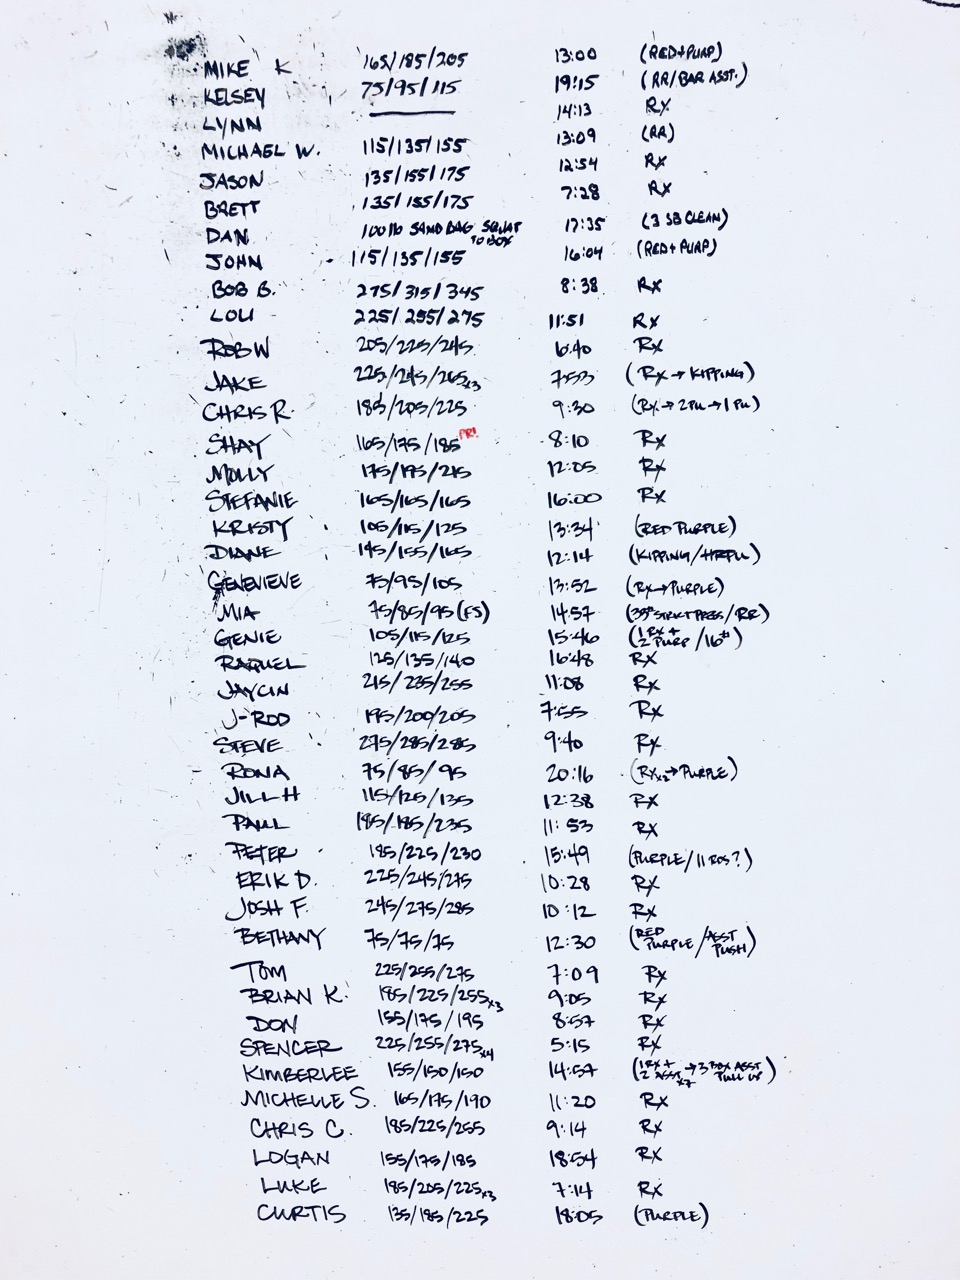 MIKE K 165/185/205 13:00 (RED+PURP)
KELSEY 75/95/115 19:15 (RR/BAR ASST.)
LYNN 14:13 Rx
MICHAEL W. 115/135/155 13:09 (RR)
JASON 135/155/175 12:54 Rx
BRETT 135/155/175 7:28 Rx
DAN 100lb SAND BAG SQUAT TO BOX 17:35 (3 SB CLEAN)
JOHN 115/135/155 16:04 (RED+PURP)
BOB B. 275/315/345 8:38 Rx
LOU 225/255/275 11:51 Rx
ROB W 205/225/245 6:40 Rx
JAKE 225/245/265x3 7:53 (Rx→KIPPING)
CHRIS R. 185/205/225 9:30 (Rx→2PU→1PU)
SHAY 165/175/185 PR! 8:10 Rx
MOLLY 175/195/215 12:05 Rx
STEFANIE 165/165/165 16:00 Rx
KRISTY 105/115/125 13:34 (RED PURPLE)
DIANE 145/155/165 12:14 (KIPPING/HRPU)
GENEVIEVE 75/95/105 13:52 (Rx→PURPLE)
MIA 75/85/95 (FS) 14:57 (35# STRICT PRESS/RR)
GENIE 105/115/125 15:46 (1 RX + 2 PURP/16#)
RAQUEL 125/135/140 16:48 Rx
JAYCIN 215/235/255 11:08 Rx
J-ROD 195/200/205 7:55 Rx
STEVE 275/285/285 9:40 Rx
RONA 75/85/95 20:16 (RXx2→PURPLE)
JILL H 115/125/135 12:38 Rx
PAUL 185/185/235 11:53 Rx
PETER 185/225/230 15:49 (PURPLE/11 RDS?)
ERIK D. 225/245/275 10:28 Rx
JOSH F. 245/275/285 10:12 Rx
BETHANY 75/75/75 12:30 (RED PURPLE/ASST PUSH)
TOM 225/255/275 7:09 Rx
BRIAN K. 185/225/255x3 9:05 Rx
DON 155/175/195 8:57 Rx
SPENCER 225/255/275x4 5:15 Rx
KIMBERLEE 155/150/150 14:57 (1 RX + 2 ASST x7→3 BOX ASST PULL UP)
MICHELLE S. 165/175/190 11:20 Rx
CHRIS C. 185/225/255 9:14 Rx
LOGAN 155/175/185 18:54 Rx
LUKE 185/205/225x3 7:14 Rx
CURTIS 135/185/225 18:05 (PURPLE)